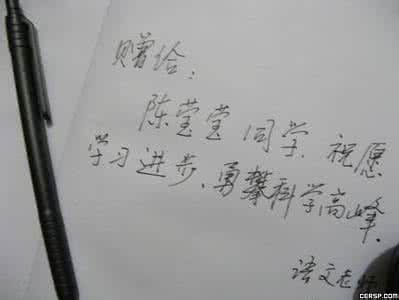 赠给：
陈莹莹同学，祝愿
学习进步、勇攀科学高峰．
语文老师
CERSP.COM